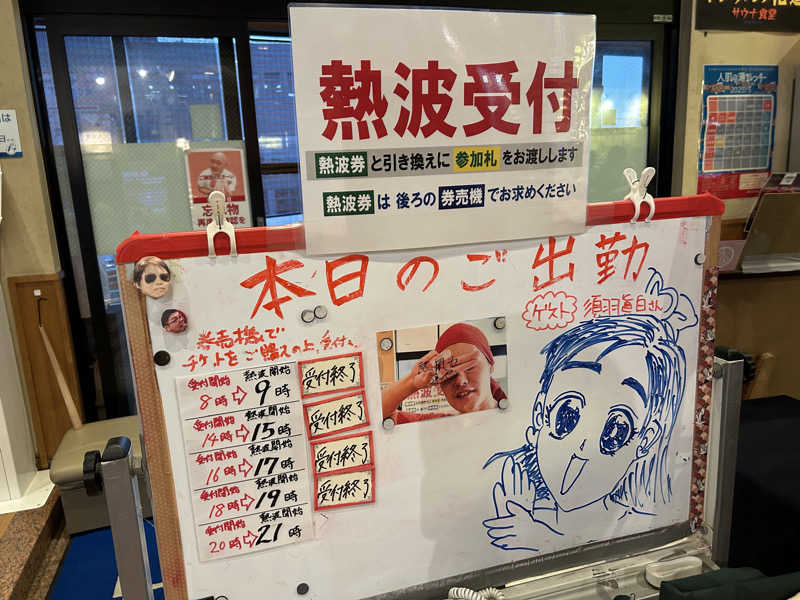 熱波受付
熱波券と引き換えに参加札をお渡しします
熱波券は後ろの券売機でお求めください
本日のご出勤
ゲスト
須羽真白さん
券売機で
チケットをご購入の上、受付へ
受付開始 熱波開始
8時⇨9時
受付終了
受付開始 熱波開始
14時⇨15時
受付終了
受付開始 熱波開始
16時⇨17時
受付終了
受付開始 熱波開始
18時⇨19時
受付終了
受付開始 熱波開始
20時⇨21時
忘れ物
サウナ食堂